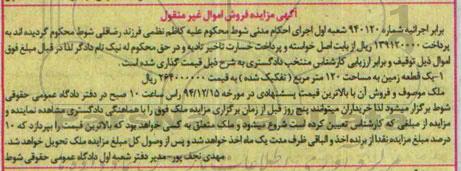 آگهی مزایده فروش اموال غیر منقول
برابر اجرائیه شماره ۹۴۰۱۲۰ شعبه اول اجرای احکام مدنی شوط محکوم علیه کاظم نظمی فرزند رضاقلی شوط محکوم گردیده اند به
پرداخت ۱۳۹۱۲۰۰۰۰ ریال از بابت اصل خواسته و پرداخت خسارت تاخیر تادیه و در حق محکوم له نیک نام دادگر لذا در قبال مبلغ فوق
اموال ذیل توقیف و برابر ارزیابی کارشناس منتخب دادگستری به شرح ذیل قیمت گذاری شده است.
۱-یک قطعه زمین به مساحت ۱۲۰ متر مربع ( تفکیک شده ) به قیمت ۲۶۴۰۰۰۰۰۰ ریال
ملک موصوف و فروش آن با بالاترین قیمت پیشنهادی در مورخه ۹۴/۱۲/۱۵ راس ساعت ۱۰ صبح در دفتر دادگاه عمومی حقوقی
شوط برگزار میشود لذا خریداران میتوانند پنج روز قبل از زمان برگزاری مزایده ملک فوق را با هماهنگی دادگستری مشاهده نماینده و
مزایده از مبلغی که کارشناس تعیین کرده است شروع میشود و ملک متعلق به کسی خواهد بود که بالاترین قیمت را بپردازد که ۱۰
درصد مبلغ مزایده نقدا از برنده اخذ و الباقی ظرف مدت یک ماه اخذ خواهد شد و پس از وصول کل مبلغ مزایده ملک تحویل خواهد شد.
مهدی نجف پور-مدیر دفتر شعبه اول دادگاه عمومی حقوقی شوط